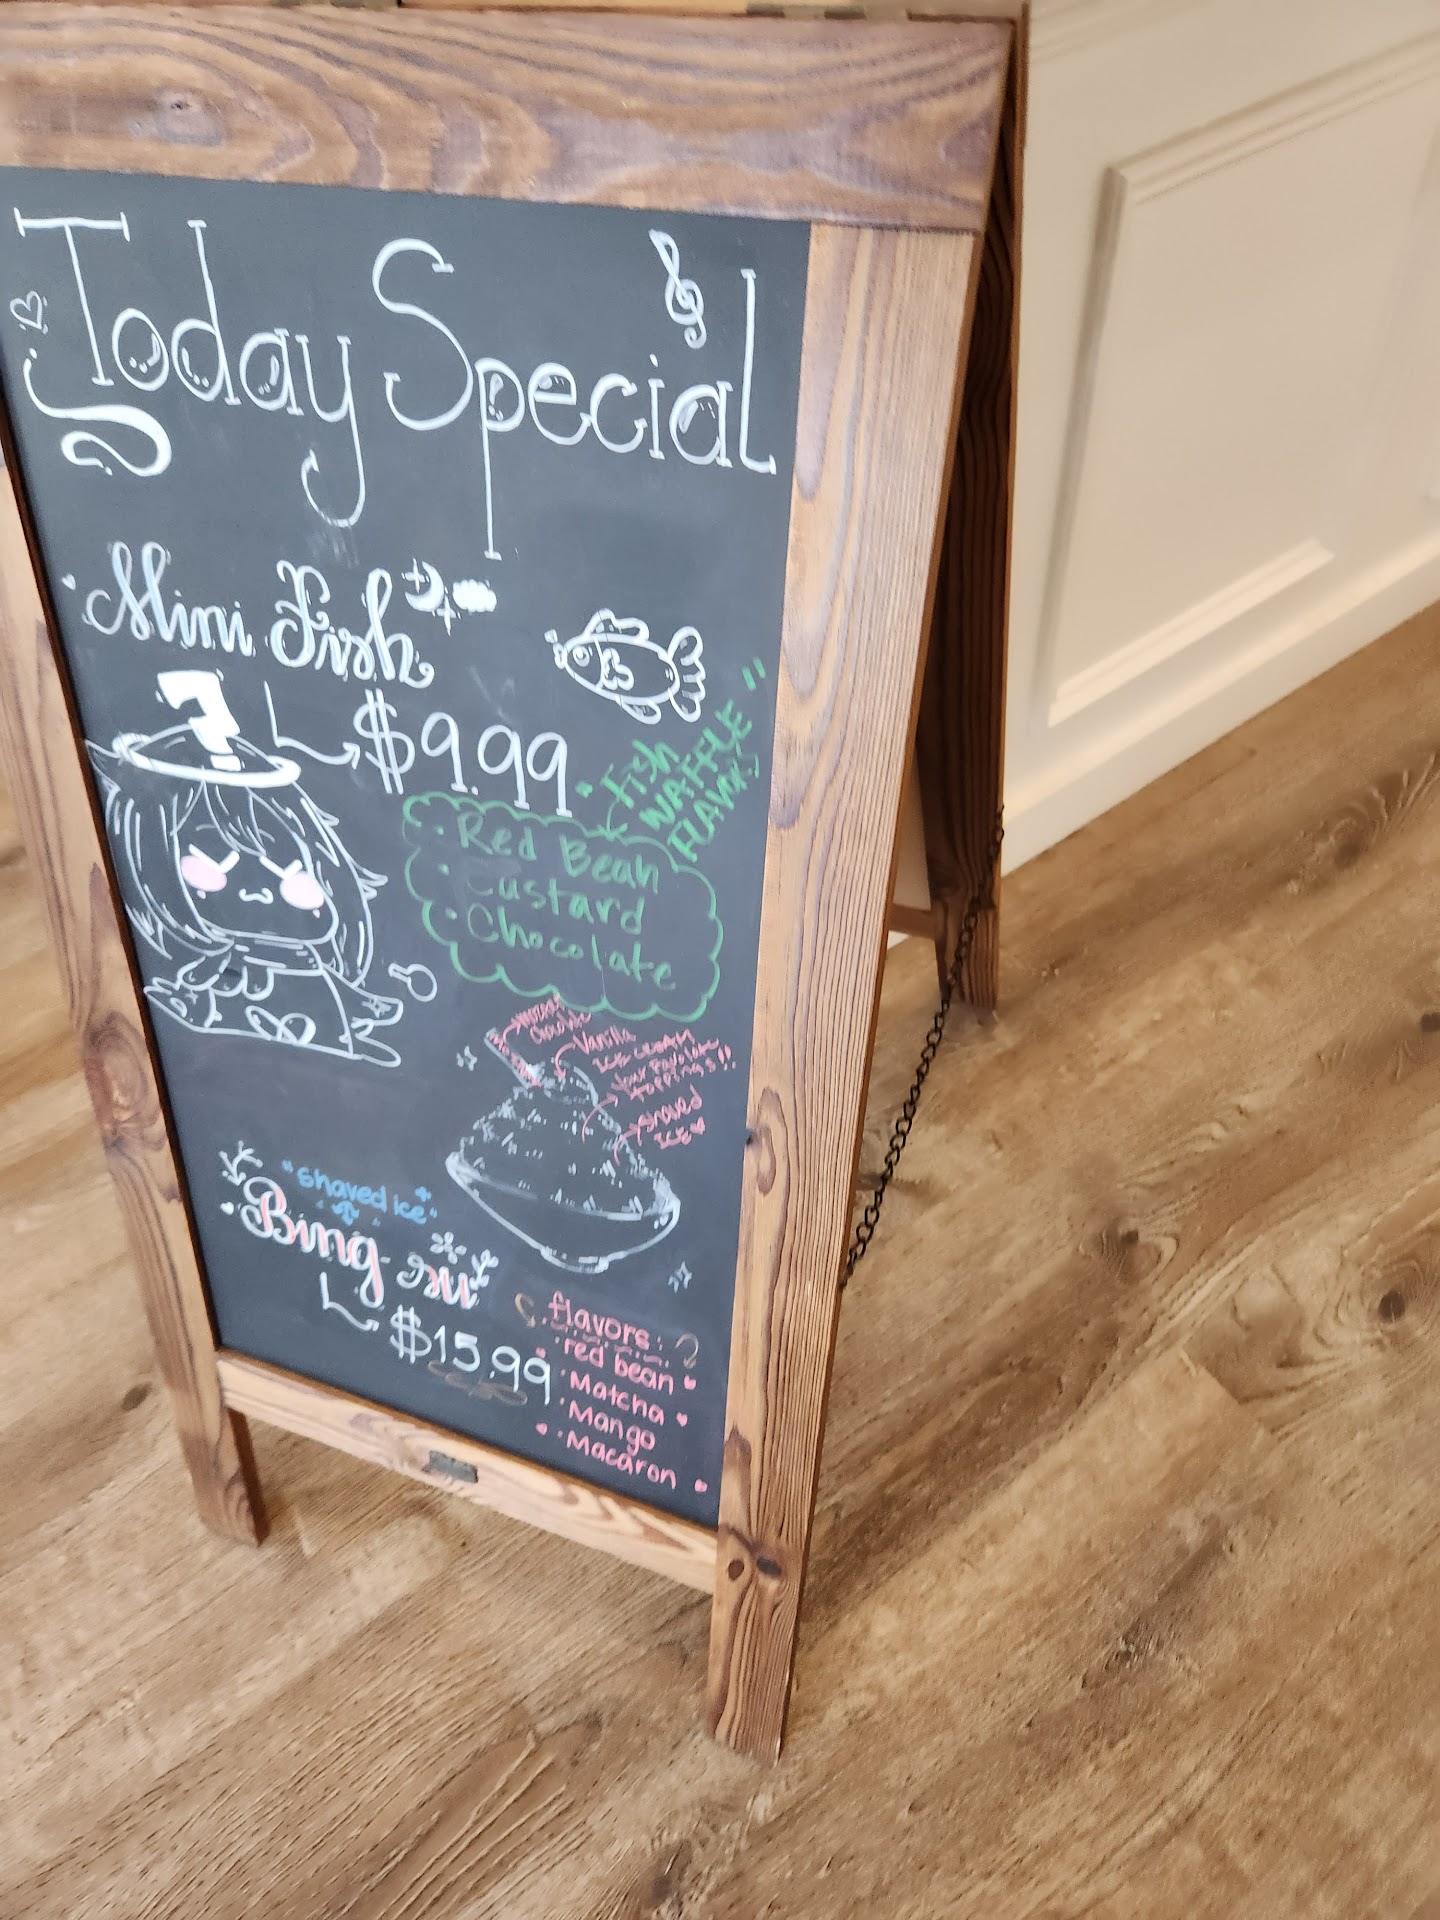 Today Special
Mini Fish
$9.99
"Fish
WAFFLE"
FLAVORS
· Red Bean
· Custard
· Chocolate
Chocolate
Vanilla
ICE CREAM
Your Favorite
toppings!!
shaved
ICE
"shaved ice"
Bing su
$15.99
flavors:
· red bean
· Matcha
· Mango
· Macaron